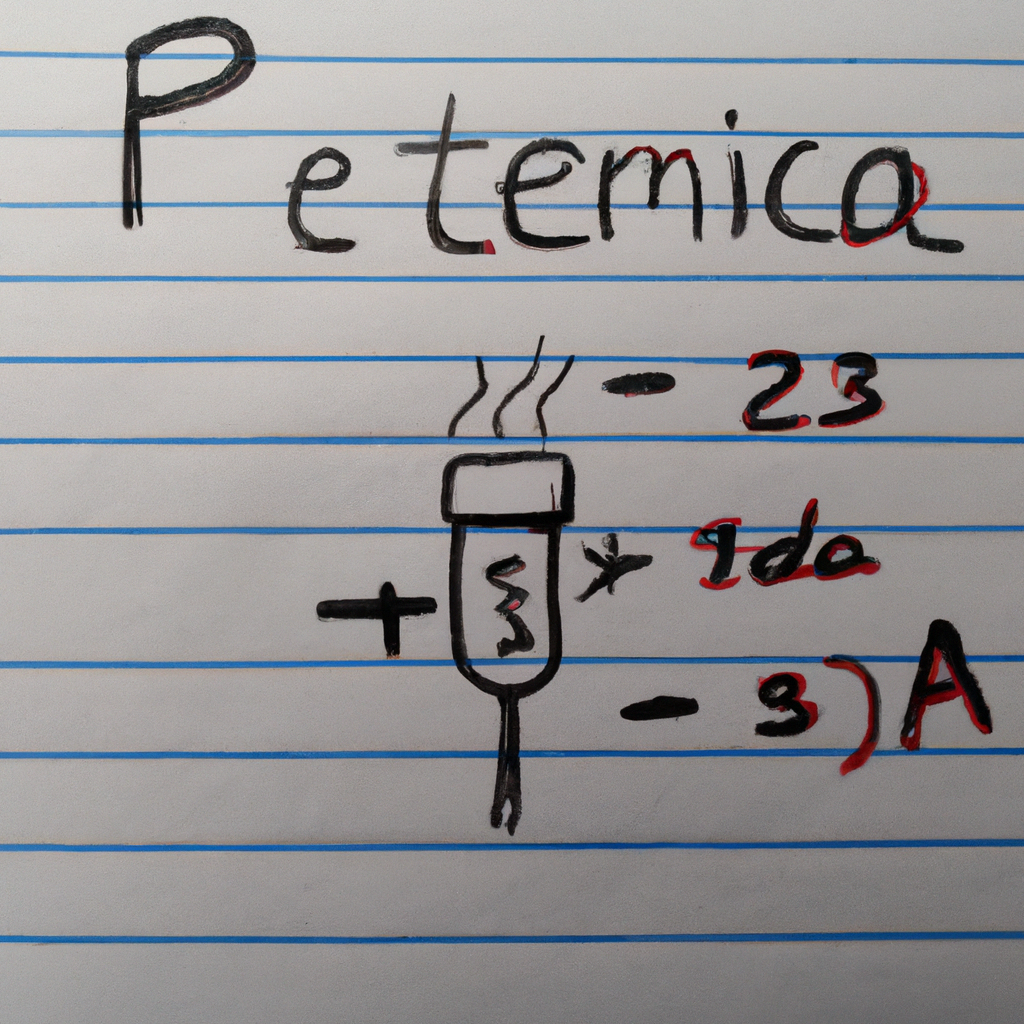 Petemica
- 23
+ * 9do
- 3) A